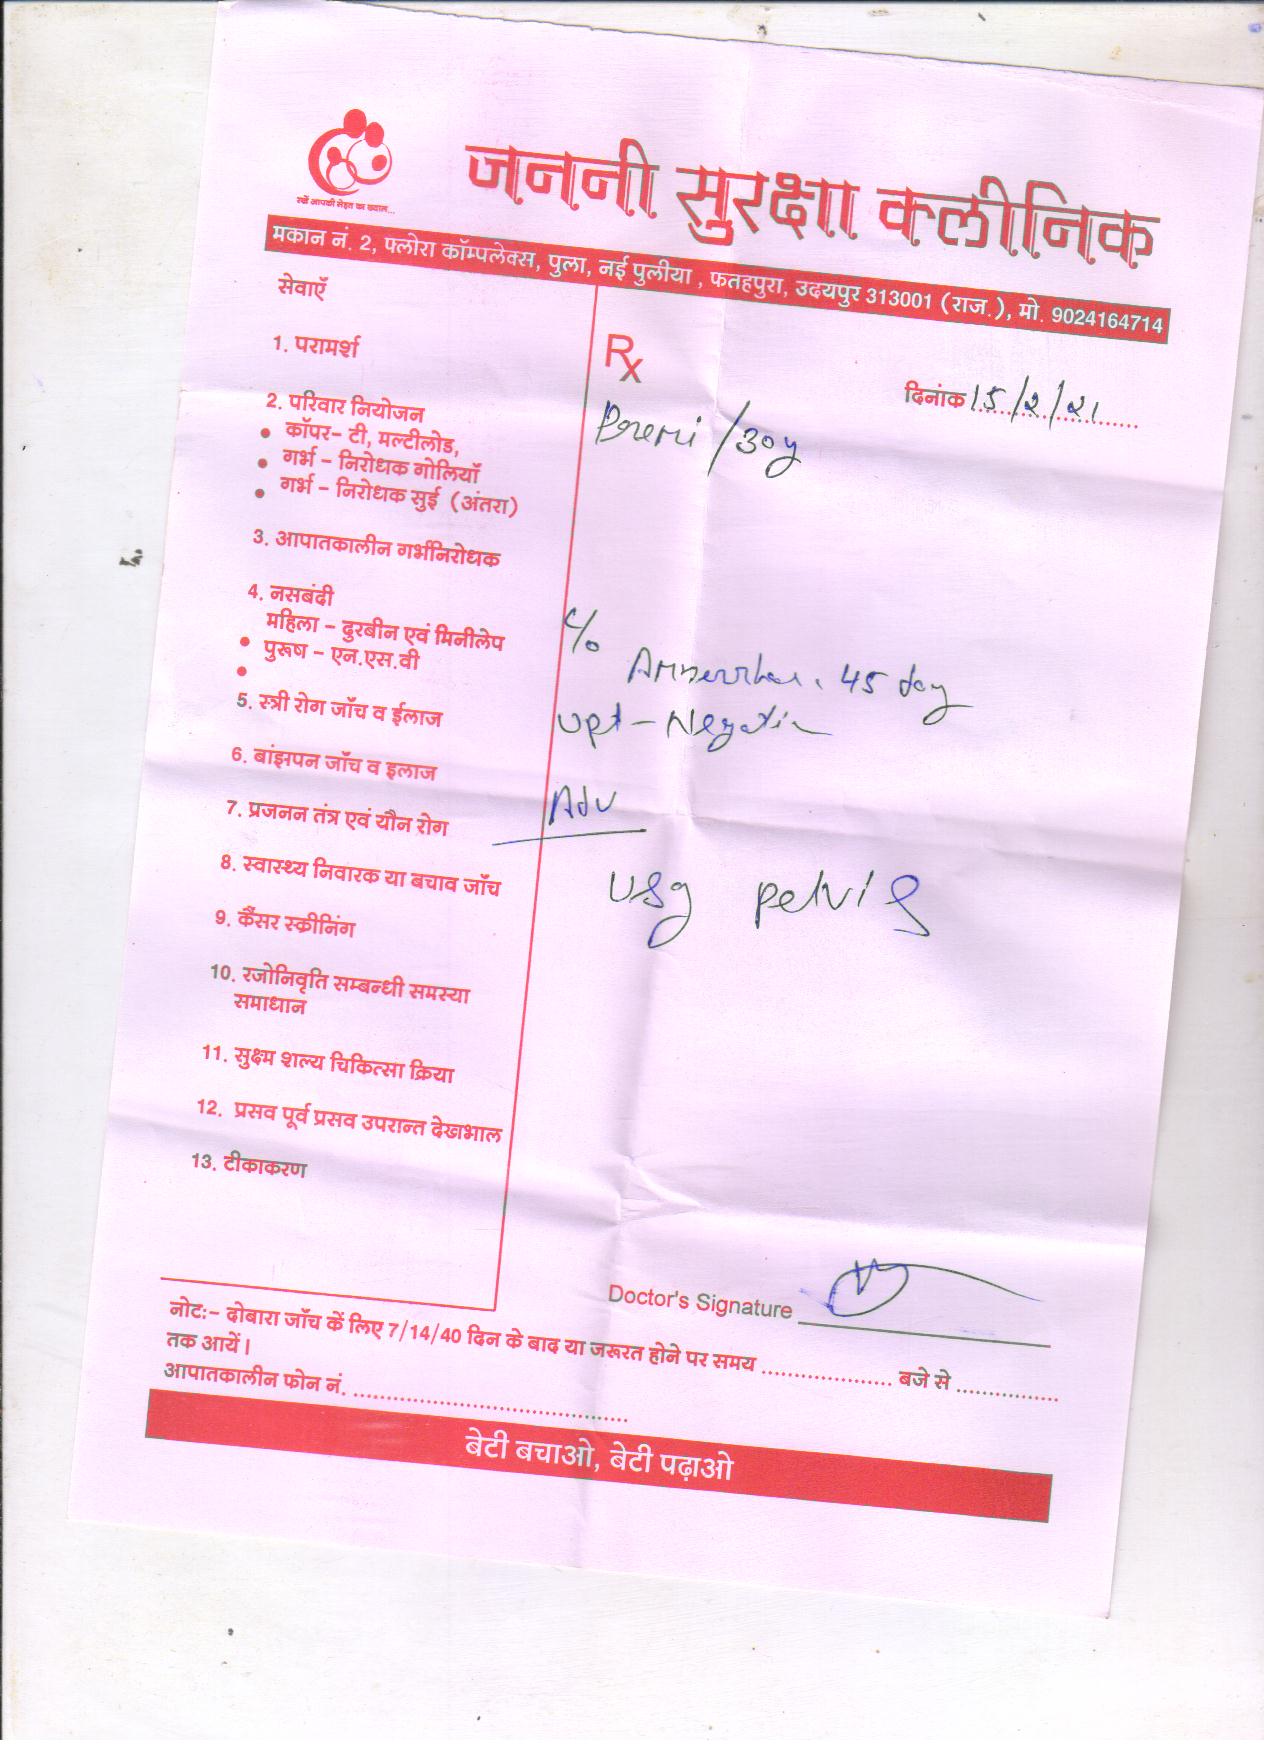 रखें आपकी सेहत का ख्याल...
जननी सुरक्षा क्लीनिक
मकान नं. 2, फ्लोरा कॉम्पलेक्स, पुला, नई पुलीया , फतहपुरा, उदयपुर 313001 (राज.), मो. 9024164714
सेवाएँ
1. परामर्श
2. परिवार नियोजन
• कॉपर- टी, मल्टीलोड,
• गर्भ - निरोधक गोलियाँ
• गर्भ - निरोधक सुई (अंतरा)
3. आपातकालीन गर्भनिरोधक
4. नसबंदी
महिला - दुरबीन एवं मिनीलेप
• पुरूष - एन.एस.वी
•
5. स्त्री रोग जाँच व ईलाज
6. बांझपन जाँच व इलाज
7. प्रजनन तंत्र एवं यौन रोग
8. स्वास्थ्य निवारक या बचाव जाँच
9. कैंसर स्क्रीनिंग
10. रजोनिवृति सम्बन्धी समस्या
समाधान
11. सुक्ष्म शल्य चिकित्सा क्रिया
12. प्रसव पूर्व प्रसव उपरान्त देखभाल
13. टीकाकरण
Rx
दिनांक 15/2/21
/30y
c/o
45 day
upt - Negative
Adv
usg pelvis
Doctor's Signature
नोट:- दोबारा जाँच कें लिए 7/14/40 दिन के बाद या जरूरत होने पर समय ..................... बजे से ................
तक आयें।
आपातकालीन फोन नं. ..........................................
बेटी बचाओ, बेटी पढ़ाओ